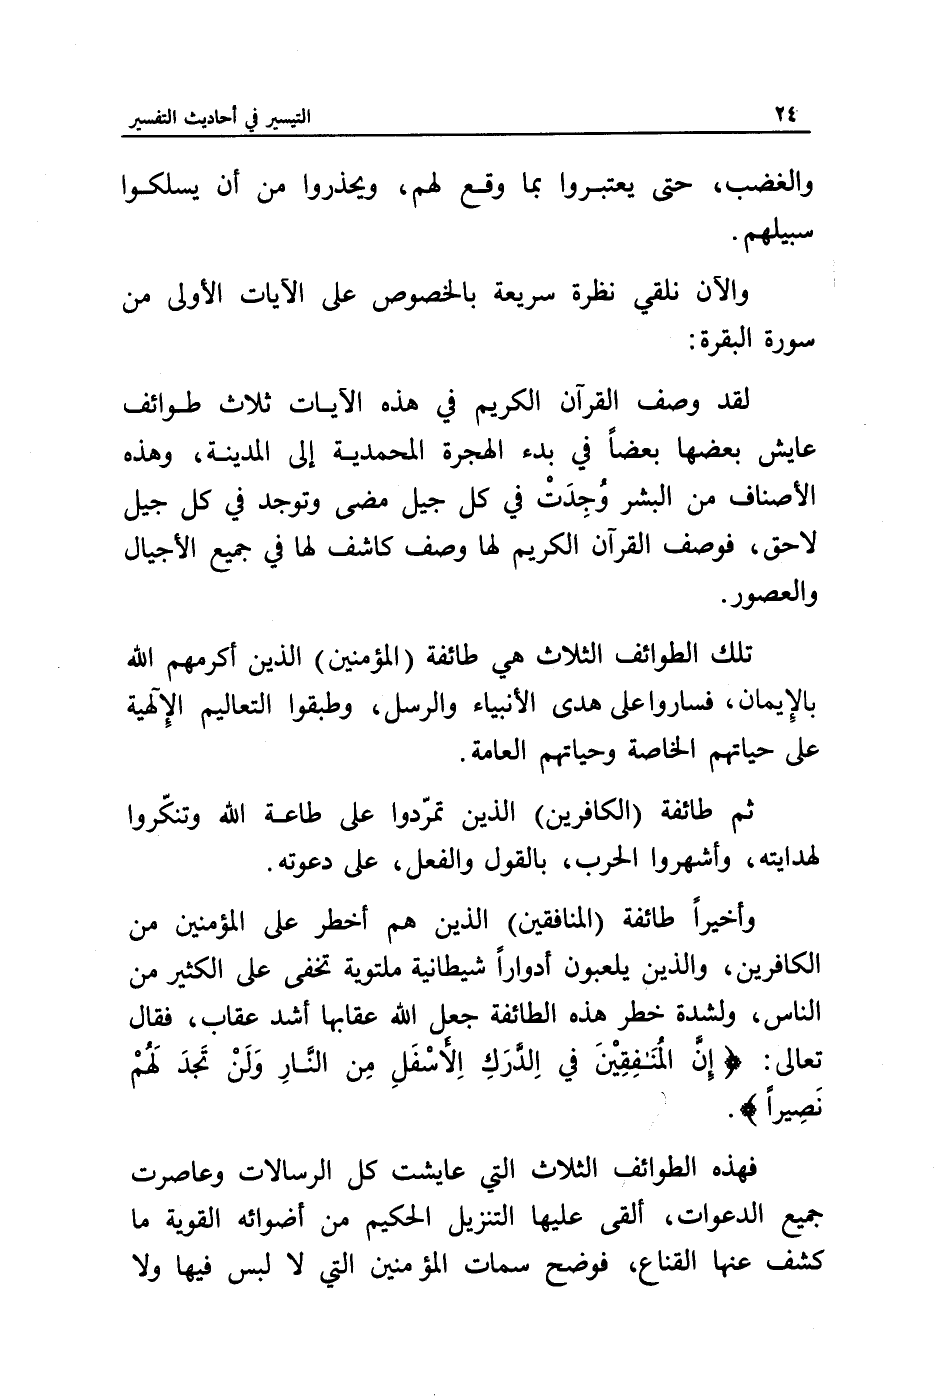 ٢٤ التيسير في أحاديث التفسير
والغضب، حتى يعتبروا بما وقع لهم، ويحذروا من أن يسلكوا
سبيلهم.
والآن نلقي نظرة سريعة بالخصوص على الآيات الأولى من
سورة البقرة:
لقد وصف القرآن الكريم في هذه الآيات ثلاث طوائف
عايش بعضها بعضاً في بدء الهجرة المحمدية إلى المدينة، وهذه
الأصناف من البشر وُجِدَتْ في كل جيل مضى وتوجد في كل جيل
لاحق، فوصف القرآن الكريم لها وصف كاشف لها في جميع الأجيال
والعصور.
تلك الطوائف الثلاث هي طائفة (المؤمنين) الذين أكرمهم الله
بالإِيمان، فساروا على هدى الأنبياء والرسل، وطبقوا التعاليم الإِلٓهية
على حياتهم الخاصة وحياتهم العامة.
ثم طائفة (الكافرين) الذين تمرّدوا على طاعة الله وتنكّروا
لهدايته، وأشهروا الحرب، بالقول والفعل، على دعوته.
وأخيراً طائفة (المنافقين) الذين هم أخطر على المؤمنين من
الكافرين، والذين يلعبون أدواراً شيطانية ملتوية تخفى على الكثير من
الناس، ولشدة خطر هذه الطائفة جعل الله عقابها أشد عقاب، فقال
تعالى: ﴿إِنَّ الْمُنَـٰفِقِيْنَ في اِلدَّرَكِ اِلأَسْفَلِ مِن النَّـارِ وَلَنْ تَجِدَ لَهُمْ
نَصِيراً﴾.
فهذه الطوائف الثلاث التي عايشت كل الرسالات وعاصرت
جميع الدعوات، ألقى عليها التنزيل الحكيم من أضوائه القوية ما
كشف عنها القناع، فوضح سمات المؤمنين التي لا لبس فيها ولا